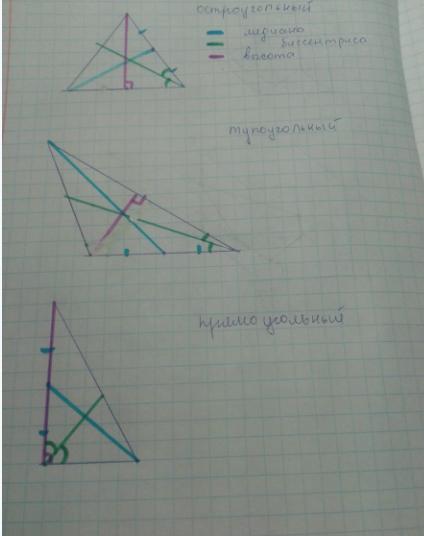 остроугольный
медиана
биссектриса
высота
тупоугольный
прямоугольный